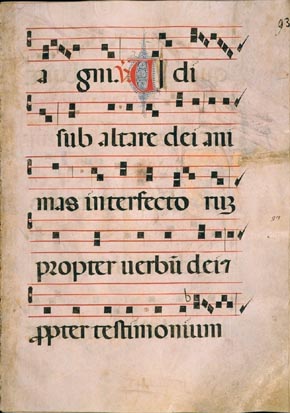 93
a gni. V Vidi
sub altare dei ani
mas interfecto ruʒ
propter uerbū dei ⁊
ꝓpter testimonium